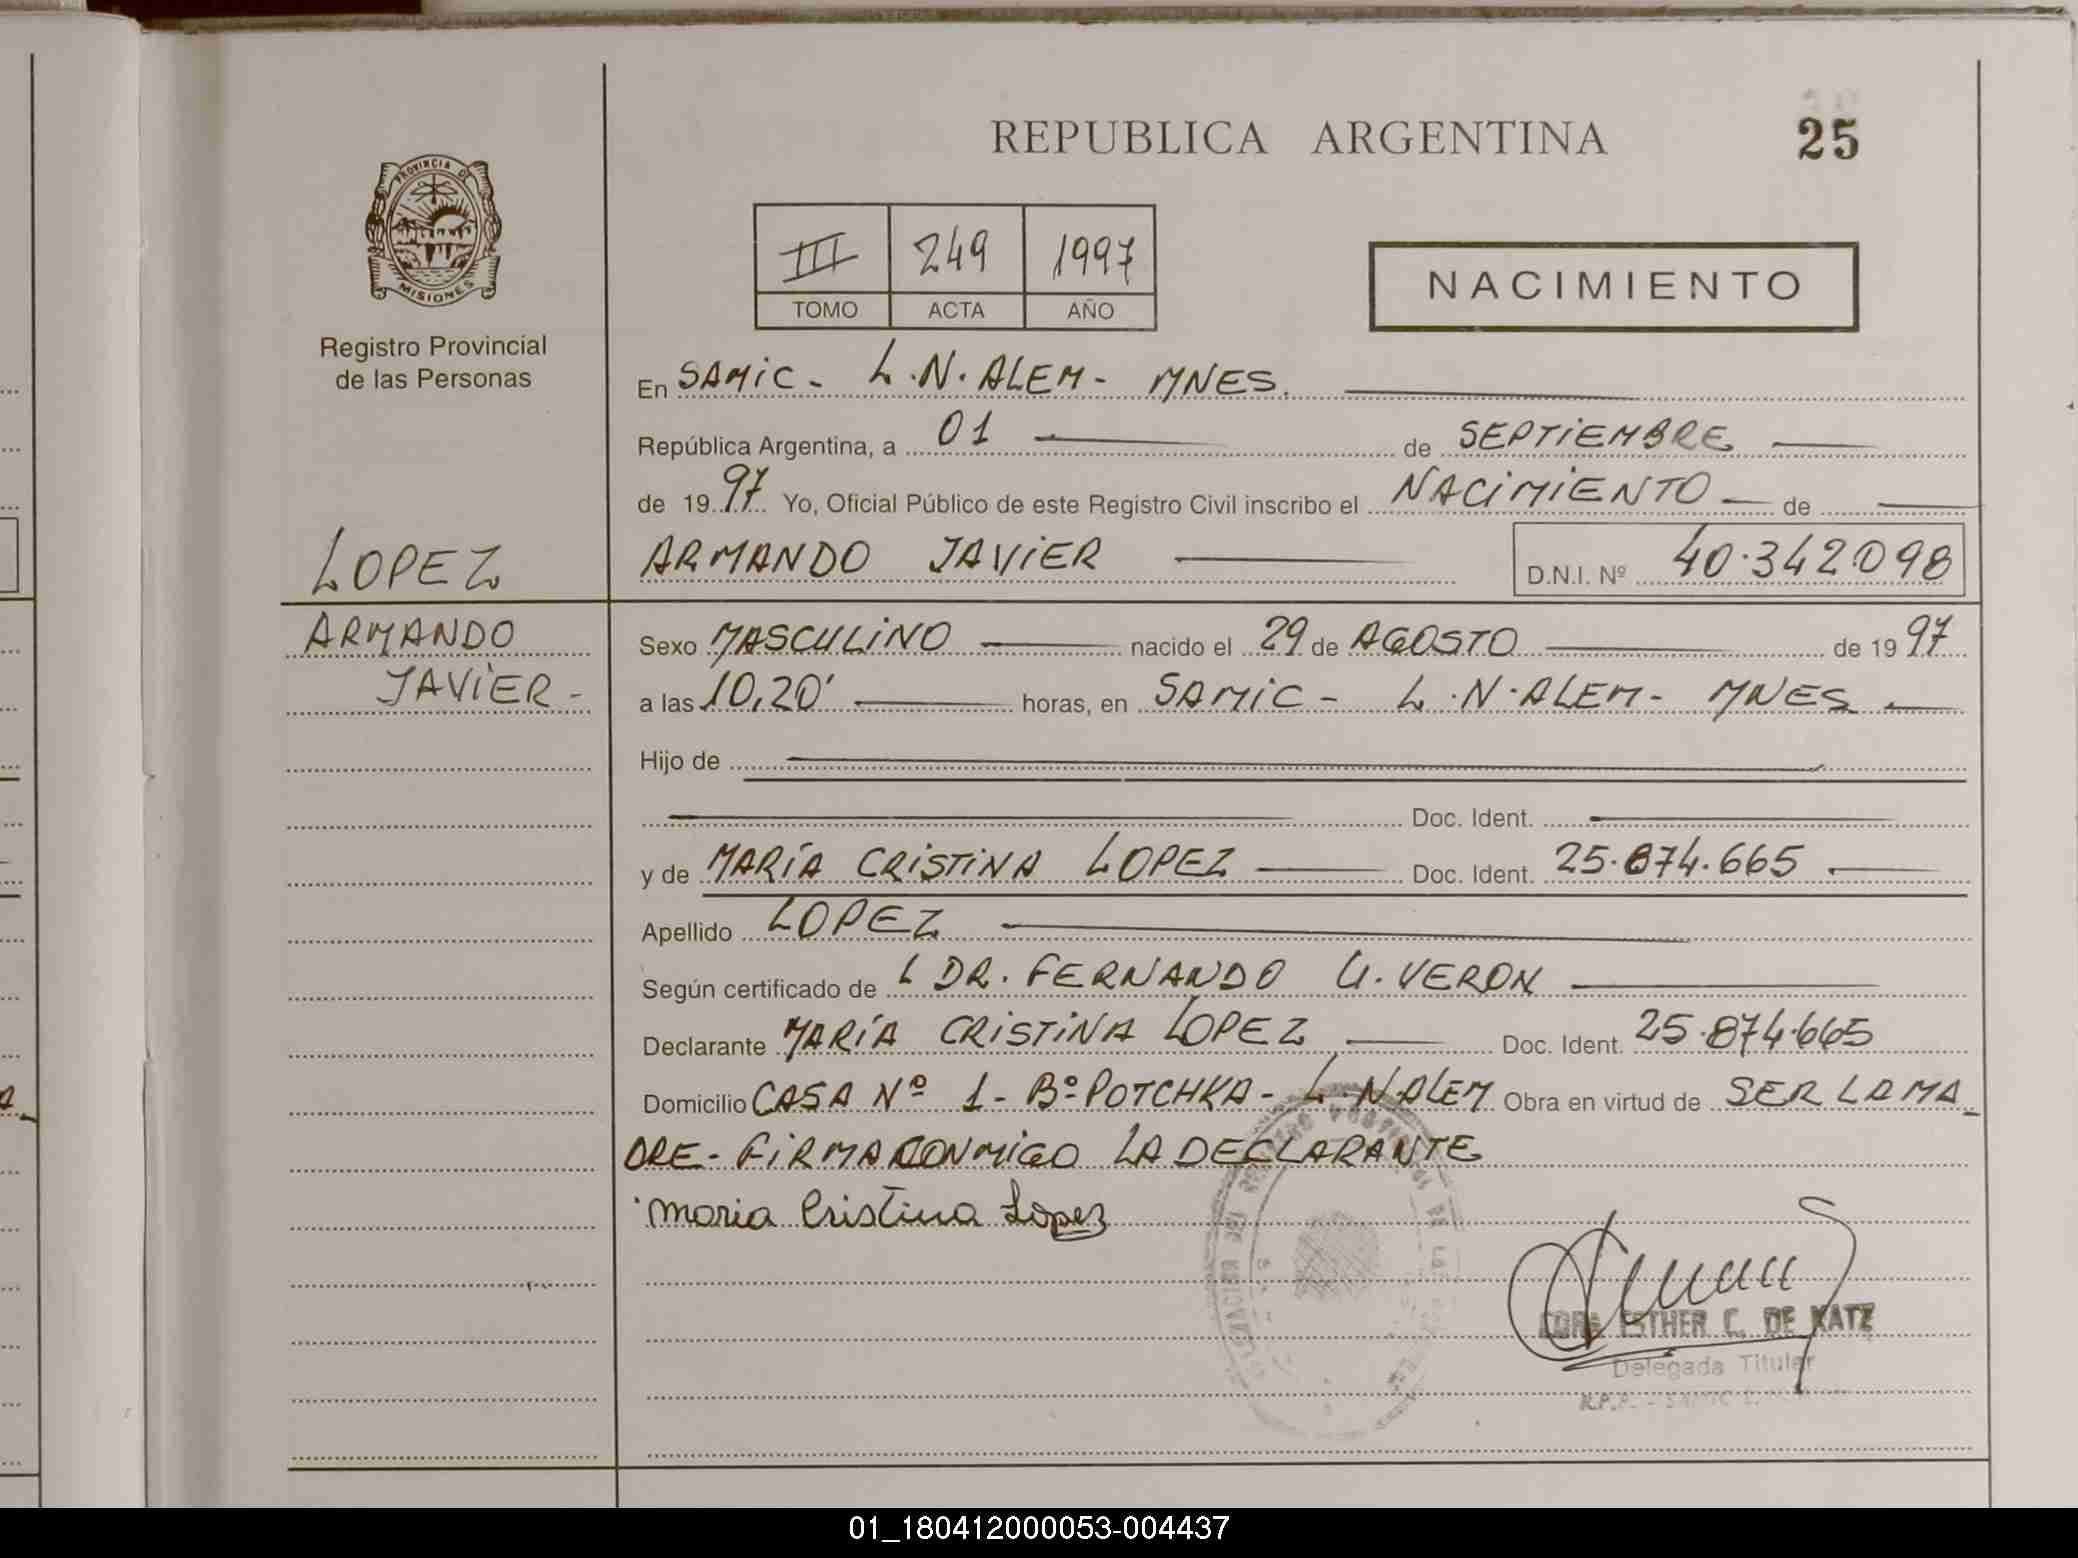 REPUBLICA ARGENTINA
25
PROVINCIA DE
MISIONES
Registro Provincial
de las Personas
III 249 1997
TOMO ACTA AÑO
NACIMIENTO
En SAMIC - L.N. ALEM - MNES.
República Argentina, a 01 de SEPTIEMBRE
de 1997 Yo, Oficial Público de este Registro Civil inscribo el NACIMIENTO de
LOPEZ
ARMANDO JAVIER D.N.I. Nº 40.342.098
ARMANDO
JAVIER -
Sexo MASCULINO nacido el 29 de AGOSTO de 1997
a las 10,20' horas, en SAMIC - L.N. ALEM - MNES
Hijo de
Doc. Ident.
y de MARÍA CRISTINA LOPEZ Doc. Ident. 25.874.665
Apellido LOPEZ
Según certificado de L DR. FERNANDO U. VERON
Declarante MARÍA CRISTINA LOPEZ Doc. Ident. 25.874.665
Domicilio CASA Nº 1 - Bº POTCHKA - L. N ALEM Obra en virtud de SER LA MA_
DRE - FIRMA CONMIGO LA DECLARANTE
Maria Cristina Lopez
ESTHER C. DE KATZ
Delegada Titular
R.P.P. - SAMIC
01_180412000053-004437